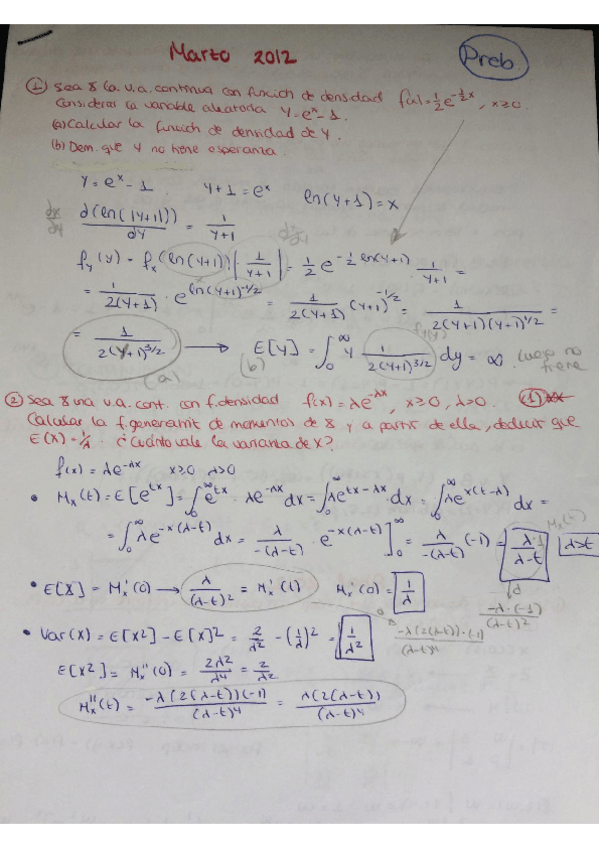 Marzo 2012
Preb.
① Sea X la v.a. continua con función de densidad f(x) = 1/2 e^{-1/2 x}, x≥0.
Considerar la variable aleatoria Y = e^x - 1.
(a) Calcular la función de densidad de Y.
(b) Dem. que Y no tiene esperanza
Y = e^x - 1. Y + 1 = e^x ln(Y+1) = x
dx/dy d(ln(|Y+1|))/dY = 1/(Y+1)
f_Y(y) = f_X(ln(Y+1)) |1/(Y+1)| = 1/2 e^{-1/2 ln(Y+1)} · 1/(Y+1) =
= 1/(2(Y+1)) · e^{ln(Y+1)^{-1/2}} = 1/(2(Y+1)) (Y+1)^{-1/2} = 1/(2(Y+1)(Y+1)^{1/2}) =
= 1/(2(Y+1)^{3/2}) → E[Y] = ∫_0^∞ y 1/(2(Y+1)^{3/2}) dy = ∞. Luego no tiene
(a) (b) f_Y(y)
② Sea X una v.a. cont. con f. densidad f(x) = λe^{-λx}, x≥0, λ>0. (1)
Calcular la f. generamit de momentos de X y a partir de ella, deducir que
E(X) = 1/λ. ¿Cuánto vale la varianza de X?
f(x) = λe^{-λx} x≥0 λ>0
• M_x(t) = E[e^{tx}] = ∫_0^∞ e^{tx} · λe^{-λx} dx = ∫_0^∞ λe^{tx-λx} dx = ∫_0^∞ λe^{x(t-λ)} dx =
= ∫_0^∞ λe^{-x(λ-t)} dx = λ/(-(λ-t)) · e^{-x(λ-t)} ]_0^∞ = λ/(-(λ-t)) (-1) = λ/(λ-t) λ>t
M_x(t)
• E[X] = M_x'(0) → λ/(λ-t)^2 = M_x'(t) M_x'(0) = 1/λ
-λ·(-1)/(λ-t)^2
• Var(X) = E[X^2] - E[X]^2 = 2/λ^2 - (1/λ)^2 = 1/λ^2
-λ(2(λ-t))·(-1)/(λ-t)^4
E[X^2] = M_x''(0) = 2λ^2/λ^4 = 2/λ^2
M_x''(t) = -λ(2(λ-t))(-1)/(λ-t)^4 = λ(2(λ-t))/(λ-t)^4